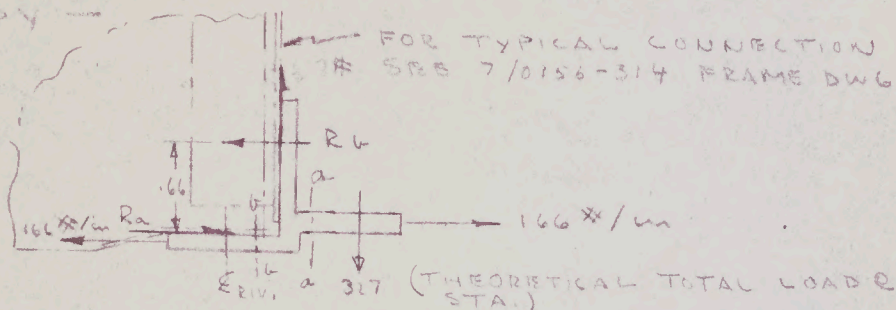 FOR TYPICAL CONNECTION
7# SEE 7/0156-314 FRAME DWG
Rb
a
.66
b
166 #/in Ra
166 #/in
b
℄ RIV. a 327 (THEORETICAL TOTAL LOAD @
STA.)